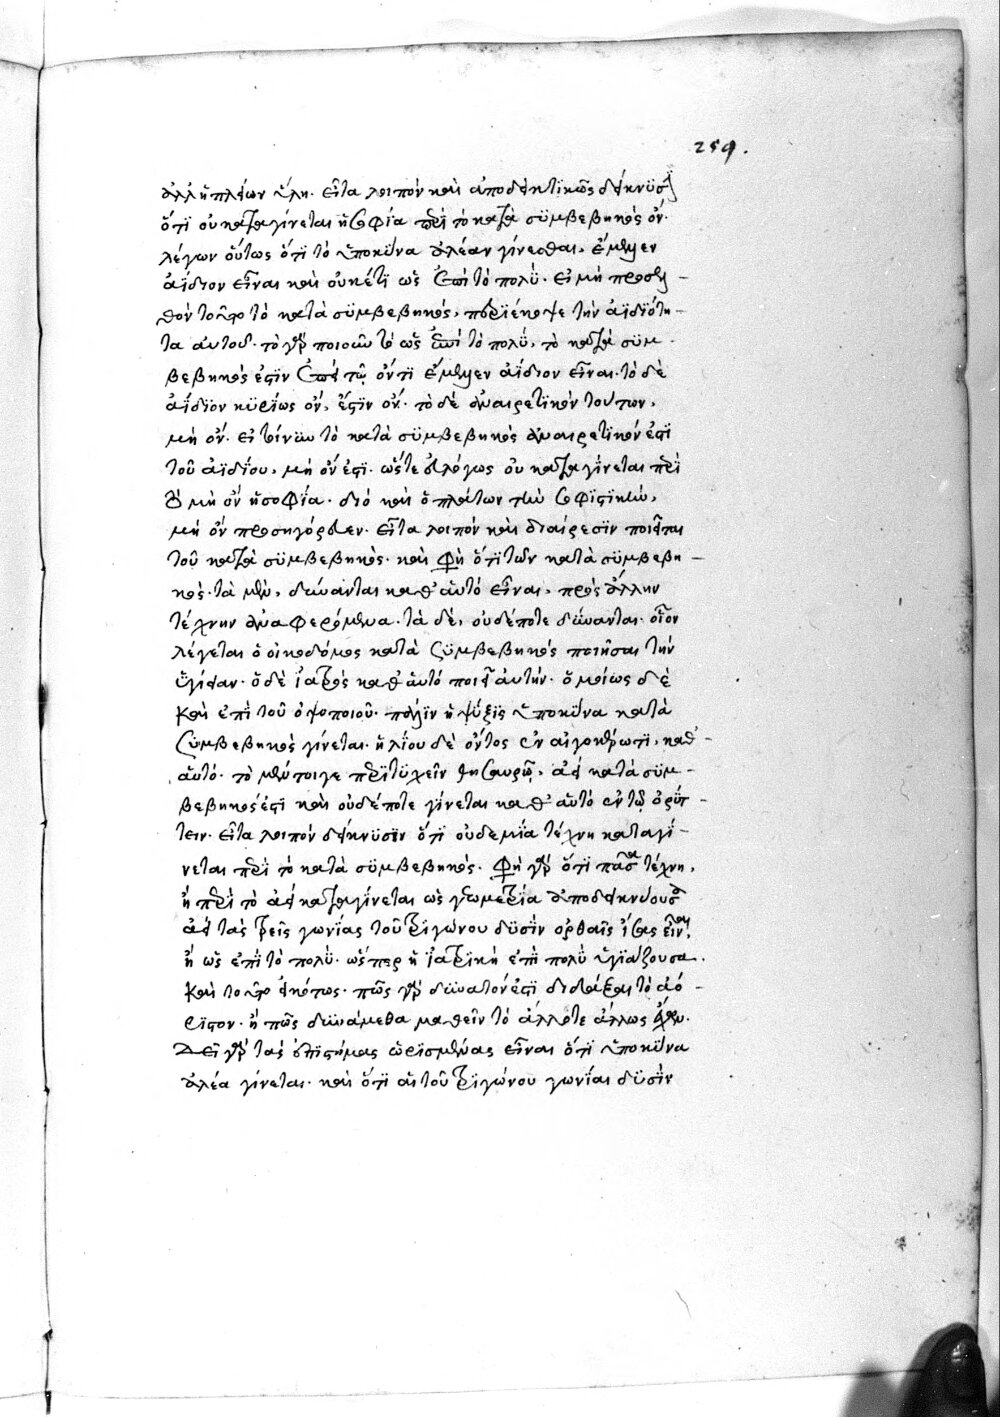 259.
ἀλλ' ἡ πλείων ὕλη. εἶτα λοιπὸν καὶ ἀποδεικτικῶς δείκνυσι
ὅτι οὐ καταγίνεται ἡ σοφία περὶ τὸ κατὰ συμβεβηκὸς ὄν.
λέγων οὕτως ὅτι τὸ ὑπὸ κύνα ἀλέαν γίνεσθαι, ἔμελλεν
ἀΐδιον εἶναι καὶ οὐκέτι ὡς ἐπὶ τὸ πολύ. εἰ μὴ προσελ-
θὸν τοῦτο τὸ κατὰ συμβεβηκός, περιέκοψε τὴν ἀϊδιότη-
τα αὐτοῦ. τὸ γὰρ ποιοῦν τὸ ὡς ἐπὶ τὸ πολύ, τὸ κατὰ συμ-
βεβηκός ἐστιν ἐπεὶ τῷ ὄντι ἔμελλεν ἀΐδιον εἶναι. τὸ δὲ
ἀΐδιον κυρίως ὄν, ἔστιν ὄν. τὸ δὲ ἀναιρετικὸν τούτων,
μὴ ὄν. εἰ τοίνυν τὸ κατὰ συμβεβηκὸς ἀναιρετικόν ἐστι
τοῦ ἀϊδίου, μὴ ὄν ἐστι. ὥστε εὐλόγως οὐ καταγίνεται περὶ
τὸ μὴ ὂν ἡ σοφία. διὸ καὶ ὁ πλάτων τὴν σοφιστικὴν,
μὴ ὂν προσηγόρευεν. εἶτα λοιπὸν καὶ διαίρεσιν ποιεῖται
τοῦ κατὰ συμβεβηκός. καὶ φησὶ ὅτι τῶν κατὰ συμβεβη-
κός. τὰ μὲν, δύνανται καθ' αὑτὸ εἶναι, πρὸς ἄλλην
τέχνην ἀναφερόμενα. τὰ δὲ, οὐδέποτε δύνανται. οἷον
λέγεται ὁ οἰκοδόμος κατὰ συμβεβηκὸς ποιῆσαι τὴν
ὑγίειαν. ὁ δὲ ἰατρὸς καθ' αὑτὸ ποιεῖ αὐτήν. ὁμοίως δὲ
καὶ ἐπὶ τοῦ ὀψοποιοῦ. πάλιν ἡ ψύξις ὑπὸ κύνα κατὰ
συμβεβηκὸς γίνεται. ἡλίου δὲ ὄντος ἐν αἰγοκέρωτι, καθ'-
αὑτό. τὸ μέντοιγε περιτυχεῖν θησαυρῷ, ἀεὶ κατὰ συμ-
βεβηκός ἐστι καὶ οὐδέποτε γίνεται καθ' αὑτὸ ἐν τῷ ὀρύτ-
τειν. εἶτα λοιπὸν δείκνυσιν ὅτι οὐδεμία τέχνη καταγί-
νεται περὶ τὸ κατὰ συμβεβηκός. φησὶ γὰρ ὅτι πᾶσα τέχνη,
ἢ περὶ τὸ ἀεὶ καταγίνεται ὡς γεωμετρία ἀποδεικνύουσα
ἀεὶ τὰς τρεῖς γωνίας τοῦ τριγώνου δυσὶν ὀρθαῖς ἴσας εἶναι,
ἢ ὡς ἐπὶ τὸ πολύ. ὥσπερ ἡ ἰατρικὴ ἐπὶ πολὺ ὑγιάζουσα.
καὶ τοῦτο εἰκότως. πῶς γὰρ δυνατόν ἐστι διδάξαι τὸ ἀό-
ριστον. ἢ πῶς δυνάμεθα μαθεῖν τὸ ἄλλοτε ἄλλως ἔχον.
Δεῖ γὰρ τὰς ἐπιστήμας ὡρισμένας εἶναι ὅτι ὑπὸ κύνα
ἀλέα γίνεται. καὶ ὅτι αἱ τοῦ τριγώνου γωνίαι δυσὶν